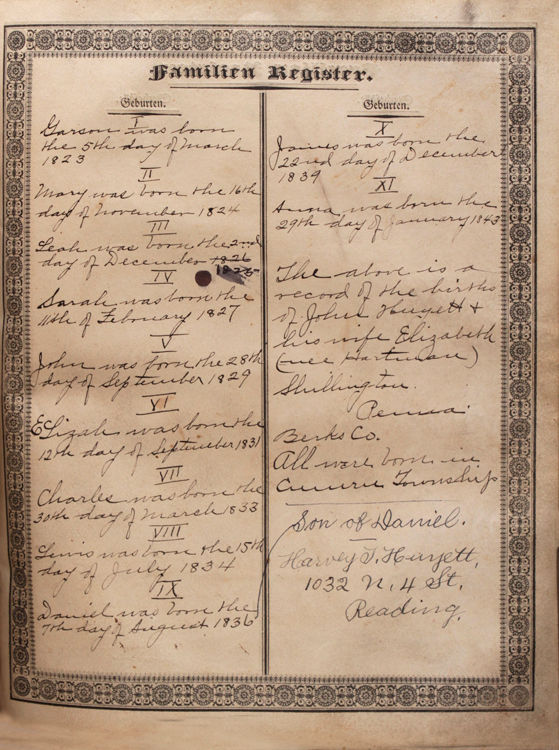 Familien Register.
Geburten.
I
Garson was born
the 5th day of March
1823
II
Mary was born the 16th
day of November 1824
III
Leah was born the 2nd
day of December 1826
1825
IV
Sarah was born the
11th of February 1827
V
John was born the 28th
day of September 1829
VI
Elizah was born the
12th day of September 1831
VII
Charles was born the
30th day of March 1833
VIII
Lewis was born the 15th
day of July 1834
IX
Daniel was born the
7th day of August 1836
Geburten.
X
James was born the
22nd day of December
1839
XI
Anna was born the
29th day of January 1843
The above is a
record of the births
of John Huyett &
his wife Elizabeth
(nee Hartman)
Shillington.
Penna.
Berks Co.
All were born in
Cumru Township
Son of Daniel.
Harvey J. Huyett,
1032 N. 4 St,
Reading.